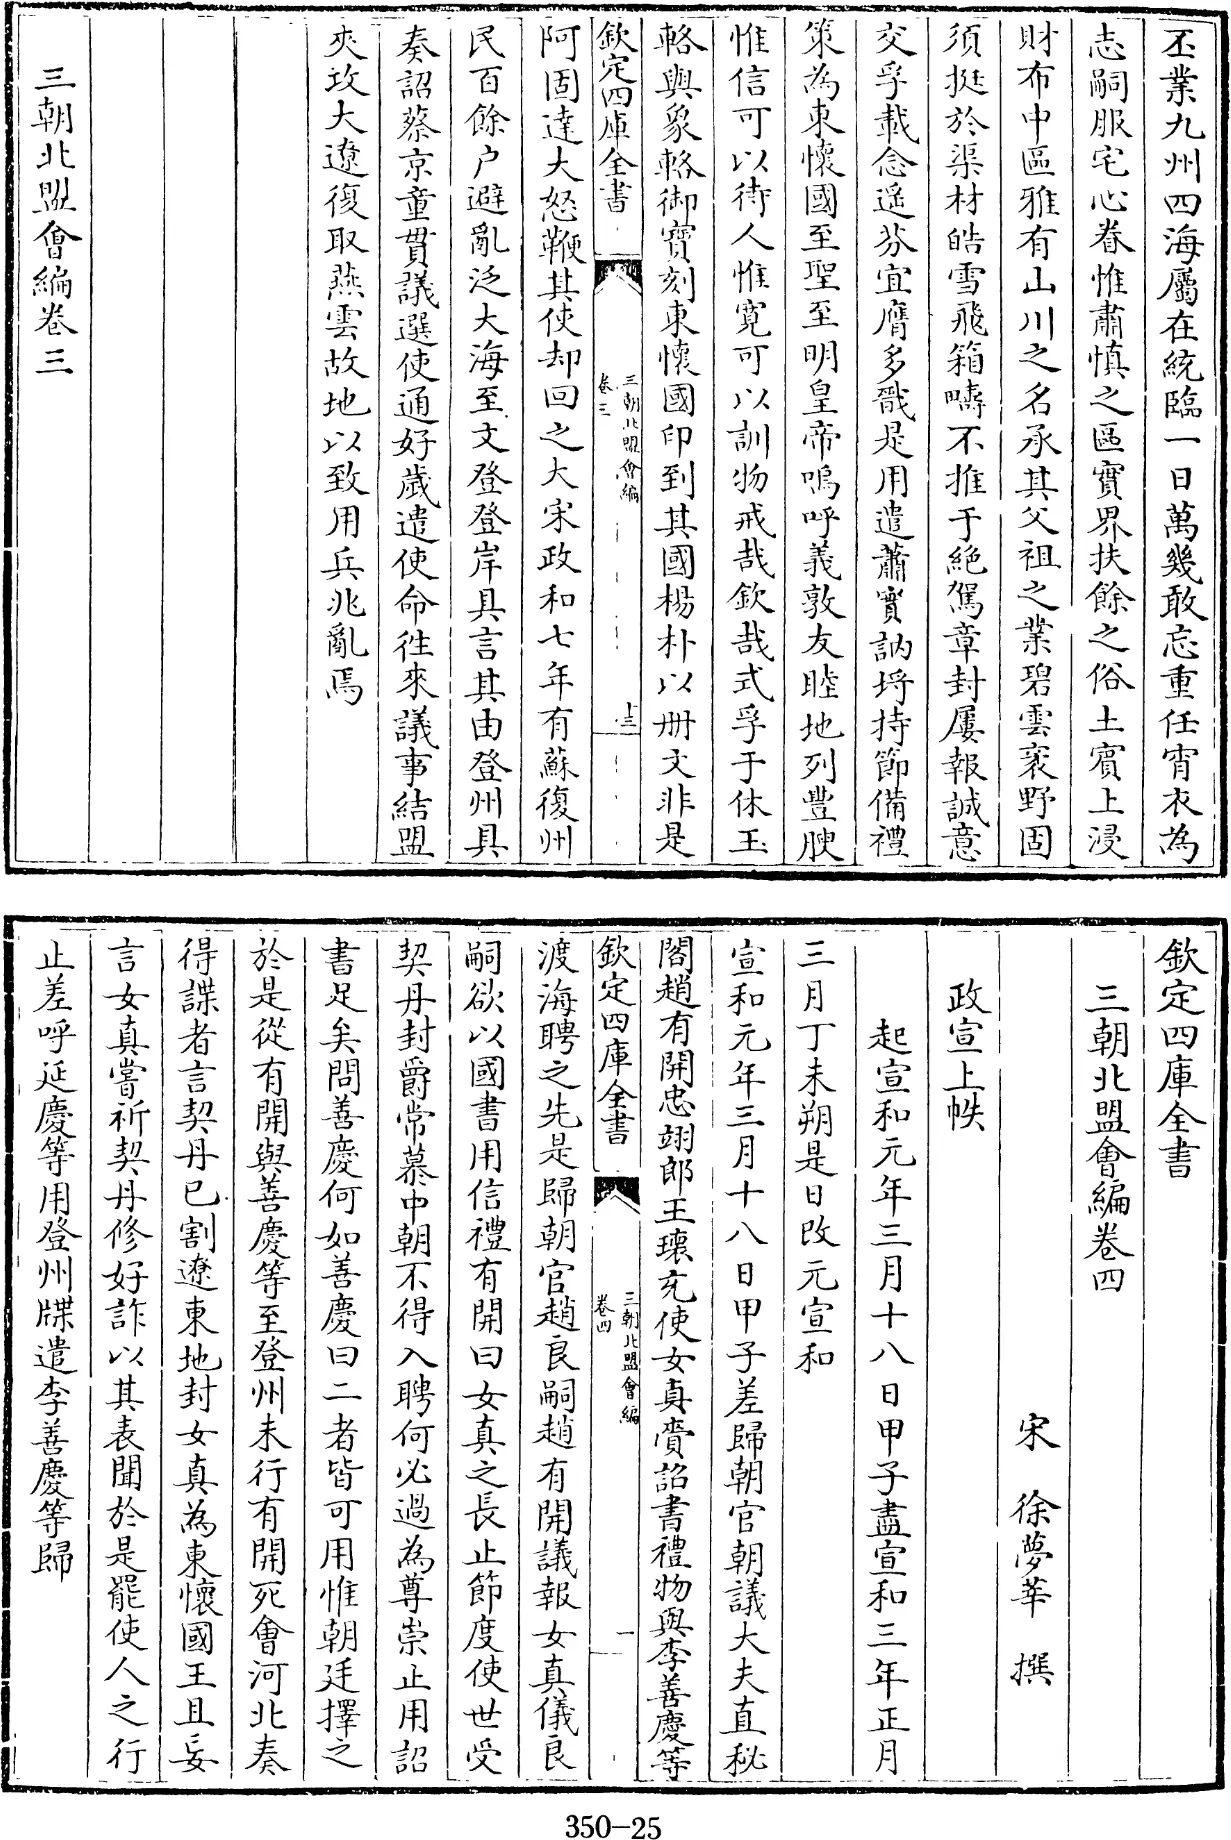 丕業九州四海屬在統臨一日萬幾敢忘重任宵衣為
志嗣服宅心眷惟肅慎之區實界扶餘之俗土賓上浸
財布中區雅有山川之名承其父祖之業碧雲袤野固
須挺於渠材皓雪飛箱疇不推于絶駕章封屢報誠意
交孚載念遥芬宜膺多戬是用遣蕭實訥埒持節備禮
策為東懷國至聖至明皇帝嗚呼義敦友睦地列豐腴
惟信可以待人惟寛可以訓物戒哉欽哉式孚于休玉
輅與象輅御寳刻東懷國印到其國楊朴以册文非是
欽定四庫全書
三朝北盟會編
卷三
十三
阿固達大怒鞭其使却回之大宋政和七年有蘇復州
民百餘户避亂泛大海至文登登岸具言其由登州具
奏詔蔡京童貫議選使通好歲遣使命徃來議事結盟
夾攻大遼復取燕雲故地以致用兵兆亂焉
三朝北盟會編卷三
欽定四庫全書
三朝北盟會編卷四
宋 徐夢莘 撰
政宣上帙
起宣和元年三月十八日甲子盡宣和三年正月
三月丁未朔是日改元宣和
宣和元年三月十八日甲子差歸朝官朝議大夫直秘
閣趙有開忠翊郎王瓌充使女真賫詔書禮物與李善慶等
欽定四庫全書
三朝北盟會編
卷四
一
渡海聘之先是歸朝官趙良嗣趙有開議報女真儀良
嗣欲以國書用信禮有開曰女真之長止節度使世受
契丹封爵常慕中朝不得入聘何必過為尊崇止用詔
書足矣問善慶何如善慶曰二者皆可用惟朝廷擇之
於是從有開與善慶等至登州未行有開死會河北奏
得諜者言契丹已割遼東地封女真為東懷國王且妄
言女真嘗祈契丹修好詐以其表聞於是罷使人之行
止差呼延慶等用登州牒遣李善慶等歸
350-25